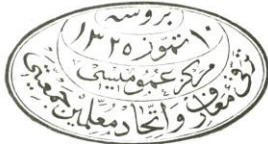 بروسه
١٠ تموز ١٣٢٥
مركز عموميسى
ترقئ معارف و اتحاد معلمين جمعيتى